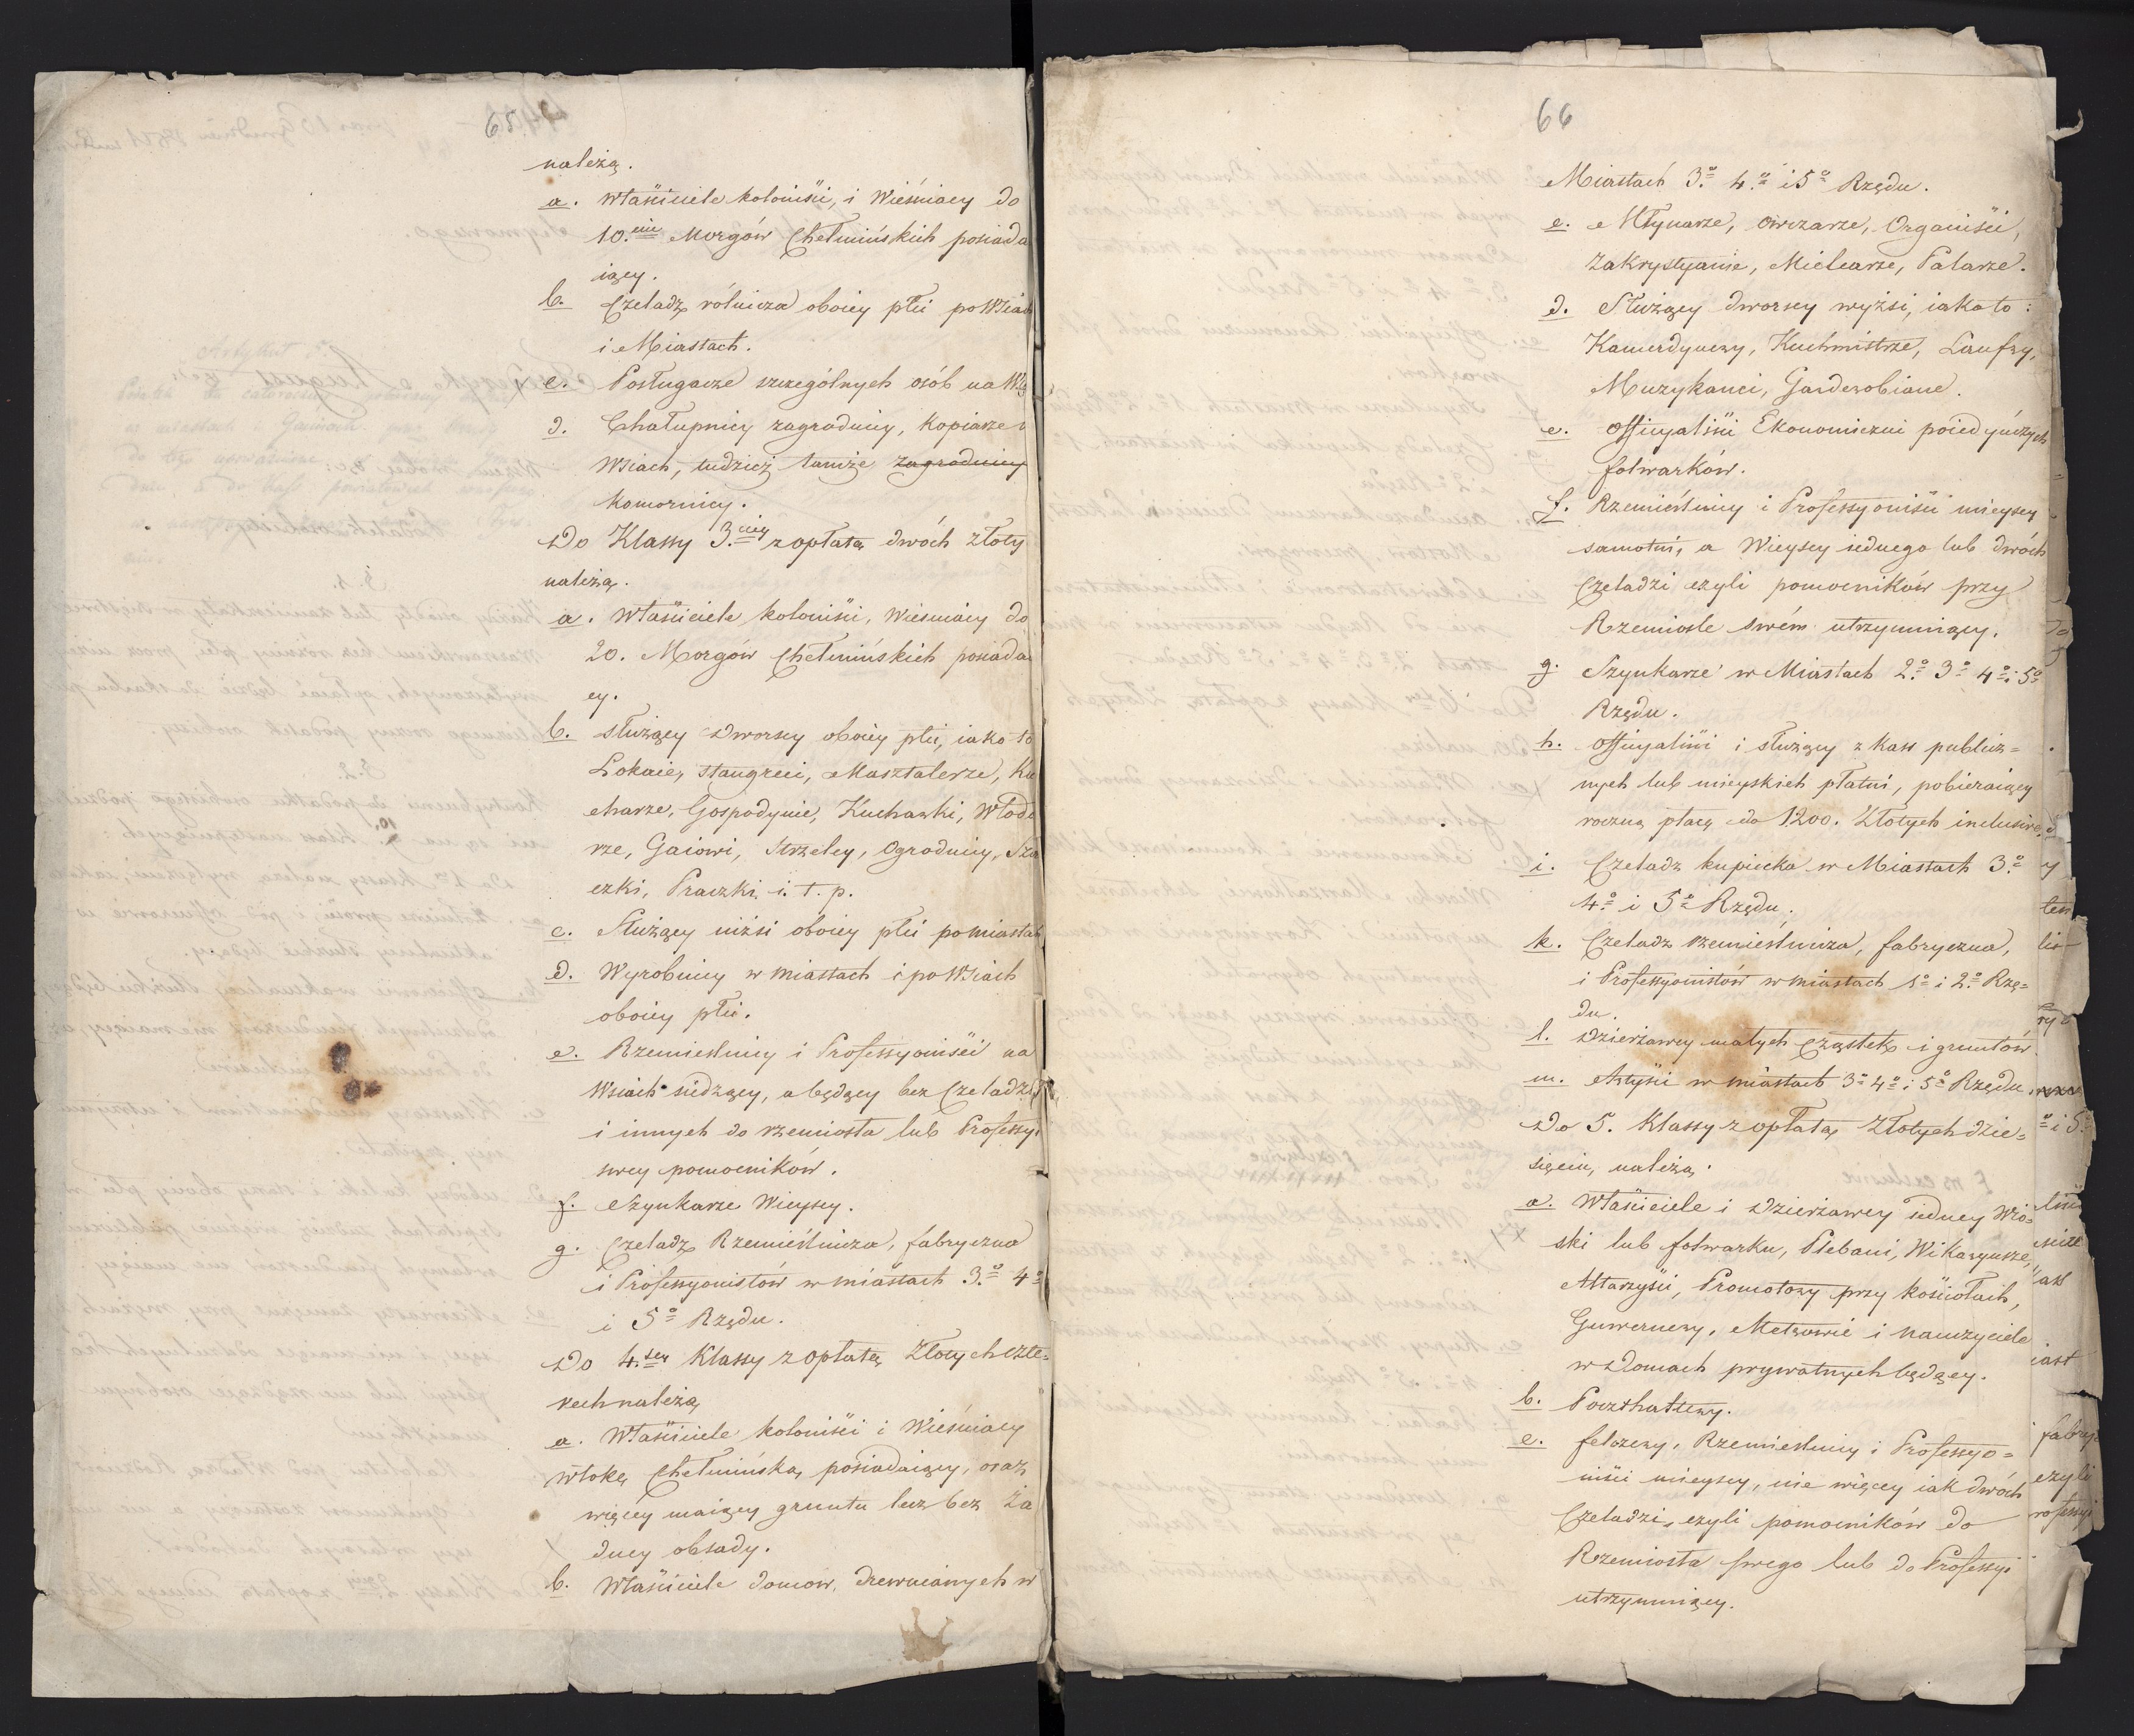 65
należą.
a. Właściciele koloniści, i Wieśniacy do
10.ciu Morgów Chełmińskich posiada
iący.
b. Czeladź rólnicza oboiey płci po Wsiach
i Miastach.
c. Posługacze szczególnych osób na Wsi
d. Chałupnicy zagrodnicy, Kopiarze
Wsiach, tudzież tamże zagrodnicy
Komornicy.
Do Klassy 3.ciey z opłatą dwóch złoty
należą.
a. Właściciele koloniści, Wiesniacy do
20. Morgów Chełmińskich posiadaią
cy.
b. służący Dworscy oboiey płci, iako to
Lokaie, stangreci, Masztalerze, Ku
charze, Gospodynie, Kucharki, Włoda
rze, Gaiowi, Strzelcy, Ogrodnicy, Szwa
czki, Praczki i. t. p.
c. Służący niżsi oboiey płci po miastach
d. Wyrobnicy w miastach i po Wsiach
oboiey płci.
e. Rzemieślnicy i Professyoniści na
Wsiach siedzący, a będący bez Czeladzi
i innych do rzemiosła lub Professyi
swey pomocników.
f. Szynkarze Wieyscy.
g. Czeladź Rzemieślnicza, fabryczna
i Professyonistów w miastach 3.o 4.o
i 5.o Rzędu.
Do 4.tey Klassy z opłatą Złotych czte=
rech należą
a. Właściciele koloniści i Wieśniacy
włokę Chełmińską posiadaiący, oraz
więcey maiący gruntu lecz bez ża
dney obsady.
b. Właściciele domow, drewnianych w
66
Miastach 3.o 4.o i 5.o Rzędu.
c. Młynarze, owczarze, Organiści,
Zakrystyanie, Mielcarze, Palarze.
d. Służący dworscy wyżsi, iako to:
Kamerdynerzy, Kuchmistrze, Laufry,
Muzykanci, Garderobiane.
e. Officyaliści Ekonomiczni poiedyńczych
folwarków.
f. Rzemieślnicy i Professyoniści mieyscy
samotni, a Wieyscy iednego lub dwóch
Czeladzi czyli pomocników przy
Rzemiośle swém utrzymuiący.
g. Szynkarze w Miastach 2.o 3.o 4.o i 5.o
Rzędu.
h. Officyaliści i służący z kass publicz=
nych lub mieyskich płatni, pobieraiący
roczną płacę do 1200. Złotych inclusive.
i. Czeladź kupiecka w Miastach 3.o
4.o i 5.o Rzędu.
k. Czeladź rzemieślnicza, fabryczna,
i Professyonistów w miastach 1.o i 2.o Rzę=
du.
l. Dzierżawcy małych Cząstek i gruntów.
m. Artyści w miastach 3.o 4.o i 5.o Rzędu.
Do 5. Klassy z opłatą Złotych dzie=
sięciu, należą.
a. Właściciele i Dzierżawcy iedney Wio=
ski lub folwarku, Plebani, Wikaryusze,
Altarzyści, Promotorzy przy kościołach,
Guwernerzy, Metrowie i nauczyciele
w Domach prywatnych będący.
b. Poczthalterzy.
c. felczerzy, Rzemieślnicy i Professyo=
niści mieyscy, nie więcey iak dwóch
Czeladzi, czyli pomocników do
Rzemiosła swego lub do Professyi
utrzymuiący.